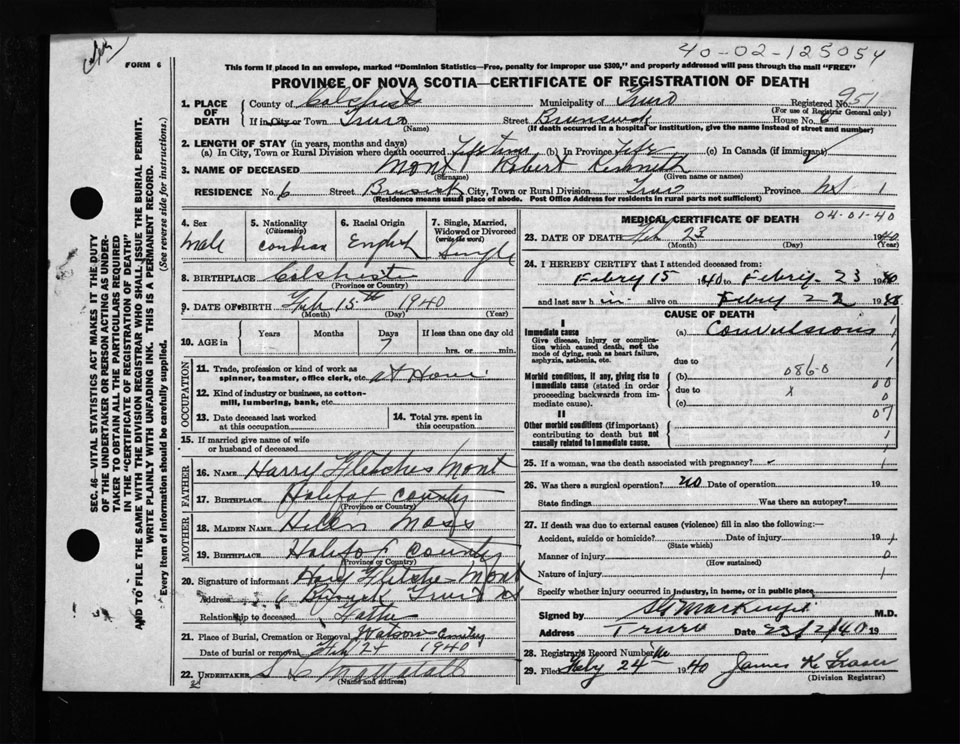 40-02-125054
FORM 6
This form if placed in an envelope, marked "Dominion Statistics—Free, penalty for improper use $300," and properly addressed will pass through the mail "FREE"
PROVINCE OF NOVA SCOTIA—CERTIFICATE OF REGISTRATION OF DEATH
1. PLACE OF DEATH County of Colchester Municipality of Truro Registered No. 951
(For use of Registrar General only)
If in City or Town Truro Street Brunswick House No. 6
(Name) (If death occurred in a hospital or institution, give the name instead of street and number)
2. LENGTH OF STAY (in years, months and days)
(a) In City, Town or Rural Division where death occurred life time (b) In Province life (c) In Canada (if immigrant)
3. NAME OF DECEASED Mont Robert
(Surname) (Given name or names)
RESIDENCE No. 6 Street City, Town or Rural Division Truro Province NS 1
(Residence means usual place of abode. Post Office Address for residents in rural parts not sufficient)
SEC. 46—VITAL STATISTICS ACT MAKES IT THE DUTY
OF THE UNDERTAKER OR PERSON ACTING AS UNDER-
TAKER TO OBTAIN ALL THE PARTICULARS REQUIRED
IN THE "CERTIFICATE OF REGISTRATION OF DEATH"
AND TO FILE THE SAME WITH THE DIVISION REGISTRAR WHO SHALL ISSUE THE BURIAL PERMIT.
WRITE PLAINLY WITH UNFADING INK. THIS IS A PERMANENT RECORD.
Every item of Information should be carefully supplied. (See reverse side for instructions.)
4. Sex male
5. Nationality (Citizenship)
6. Racial Origin English
7. Single, Married, Widowed or Divorced (write the word) Single
8. BIRTHPLACE Colchester
(Province or Country)
9. DATE OF BIRTH Feb 15th 1940
(Month) (Day) (Year)
10. AGE in Years Months Days 7 If less than one day old hrs. or min.
OCCUPATION
11. Trade, profession or kind of work as spinner, teamster, office clerk, etc. at Home
12. Kind of industry or business, as cotton-mill, lumbering, bank, etc.
13. Date deceased last worked at this occupation
14. Total yrs. spent in this occupation
15. If married give name of wife or husband of deceased
FATHER
16. NAME Harry Fletcher Mont
17. BIRTHPLACE Halifax County
(Province or Country)
MOTHER
18. MAIDEN NAME Helen
19. BIRTHPLACE Halifax County
(Province or Country)
20. Signature of informant Harry Fletcher Mont
Address 6 Truro NS
Relationship to deceased Father
21. Place of Burial, Cremation or Removal Watson
Date of burial or removal Feb 24 1940
22. UNDERTAKER
(Name and address)
MEDICAL CERTIFICATE OF DEATH
04-01-40
23. DATE OF DEATH Feb 23 1940
(Month) (Day) (Year)
24. I HEREBY CERTIFY that I attended deceased from:
Febry 15 1940 to Febry 23 1940
and last saw him alive on Febry 22 19
CAUSE OF DEATH
I
Immediate cause (a) Convulsions 1
Give disease, injury or complication which caused death, not the mode of dying, such as heart failure, asphyxia, asthenia, etc.
due to 1
Morbid conditions, if any, giving rise to immediate cause (stated in order proceeding backwards from immediate cause).
(b) 0860
due to x 00
(c) 0
II 07
Other morbid conditions (if important) contributing to death but not causally related to immediate cause. 1
25. If a woman, was the death associated with pregnancy? 1
26. Was there a surgical operation? no Date of operation 19
State findings Was there an autopsy?
27. If death was due to external causes (violence) fill in also the following:—
Accident, suicide or homicide? Date of injury 19
(State which)
Manner of injury 0
(How sustained)
Nature of injury 1
Specify whether injury occurred in industry, in home, or in public place
Signed by MacKenzie M.D.
Address Truro Date 23/2/40 19
28. Registrar's Record Number
29. Filed 24 1940 James K Fraser
(Division Registrar)